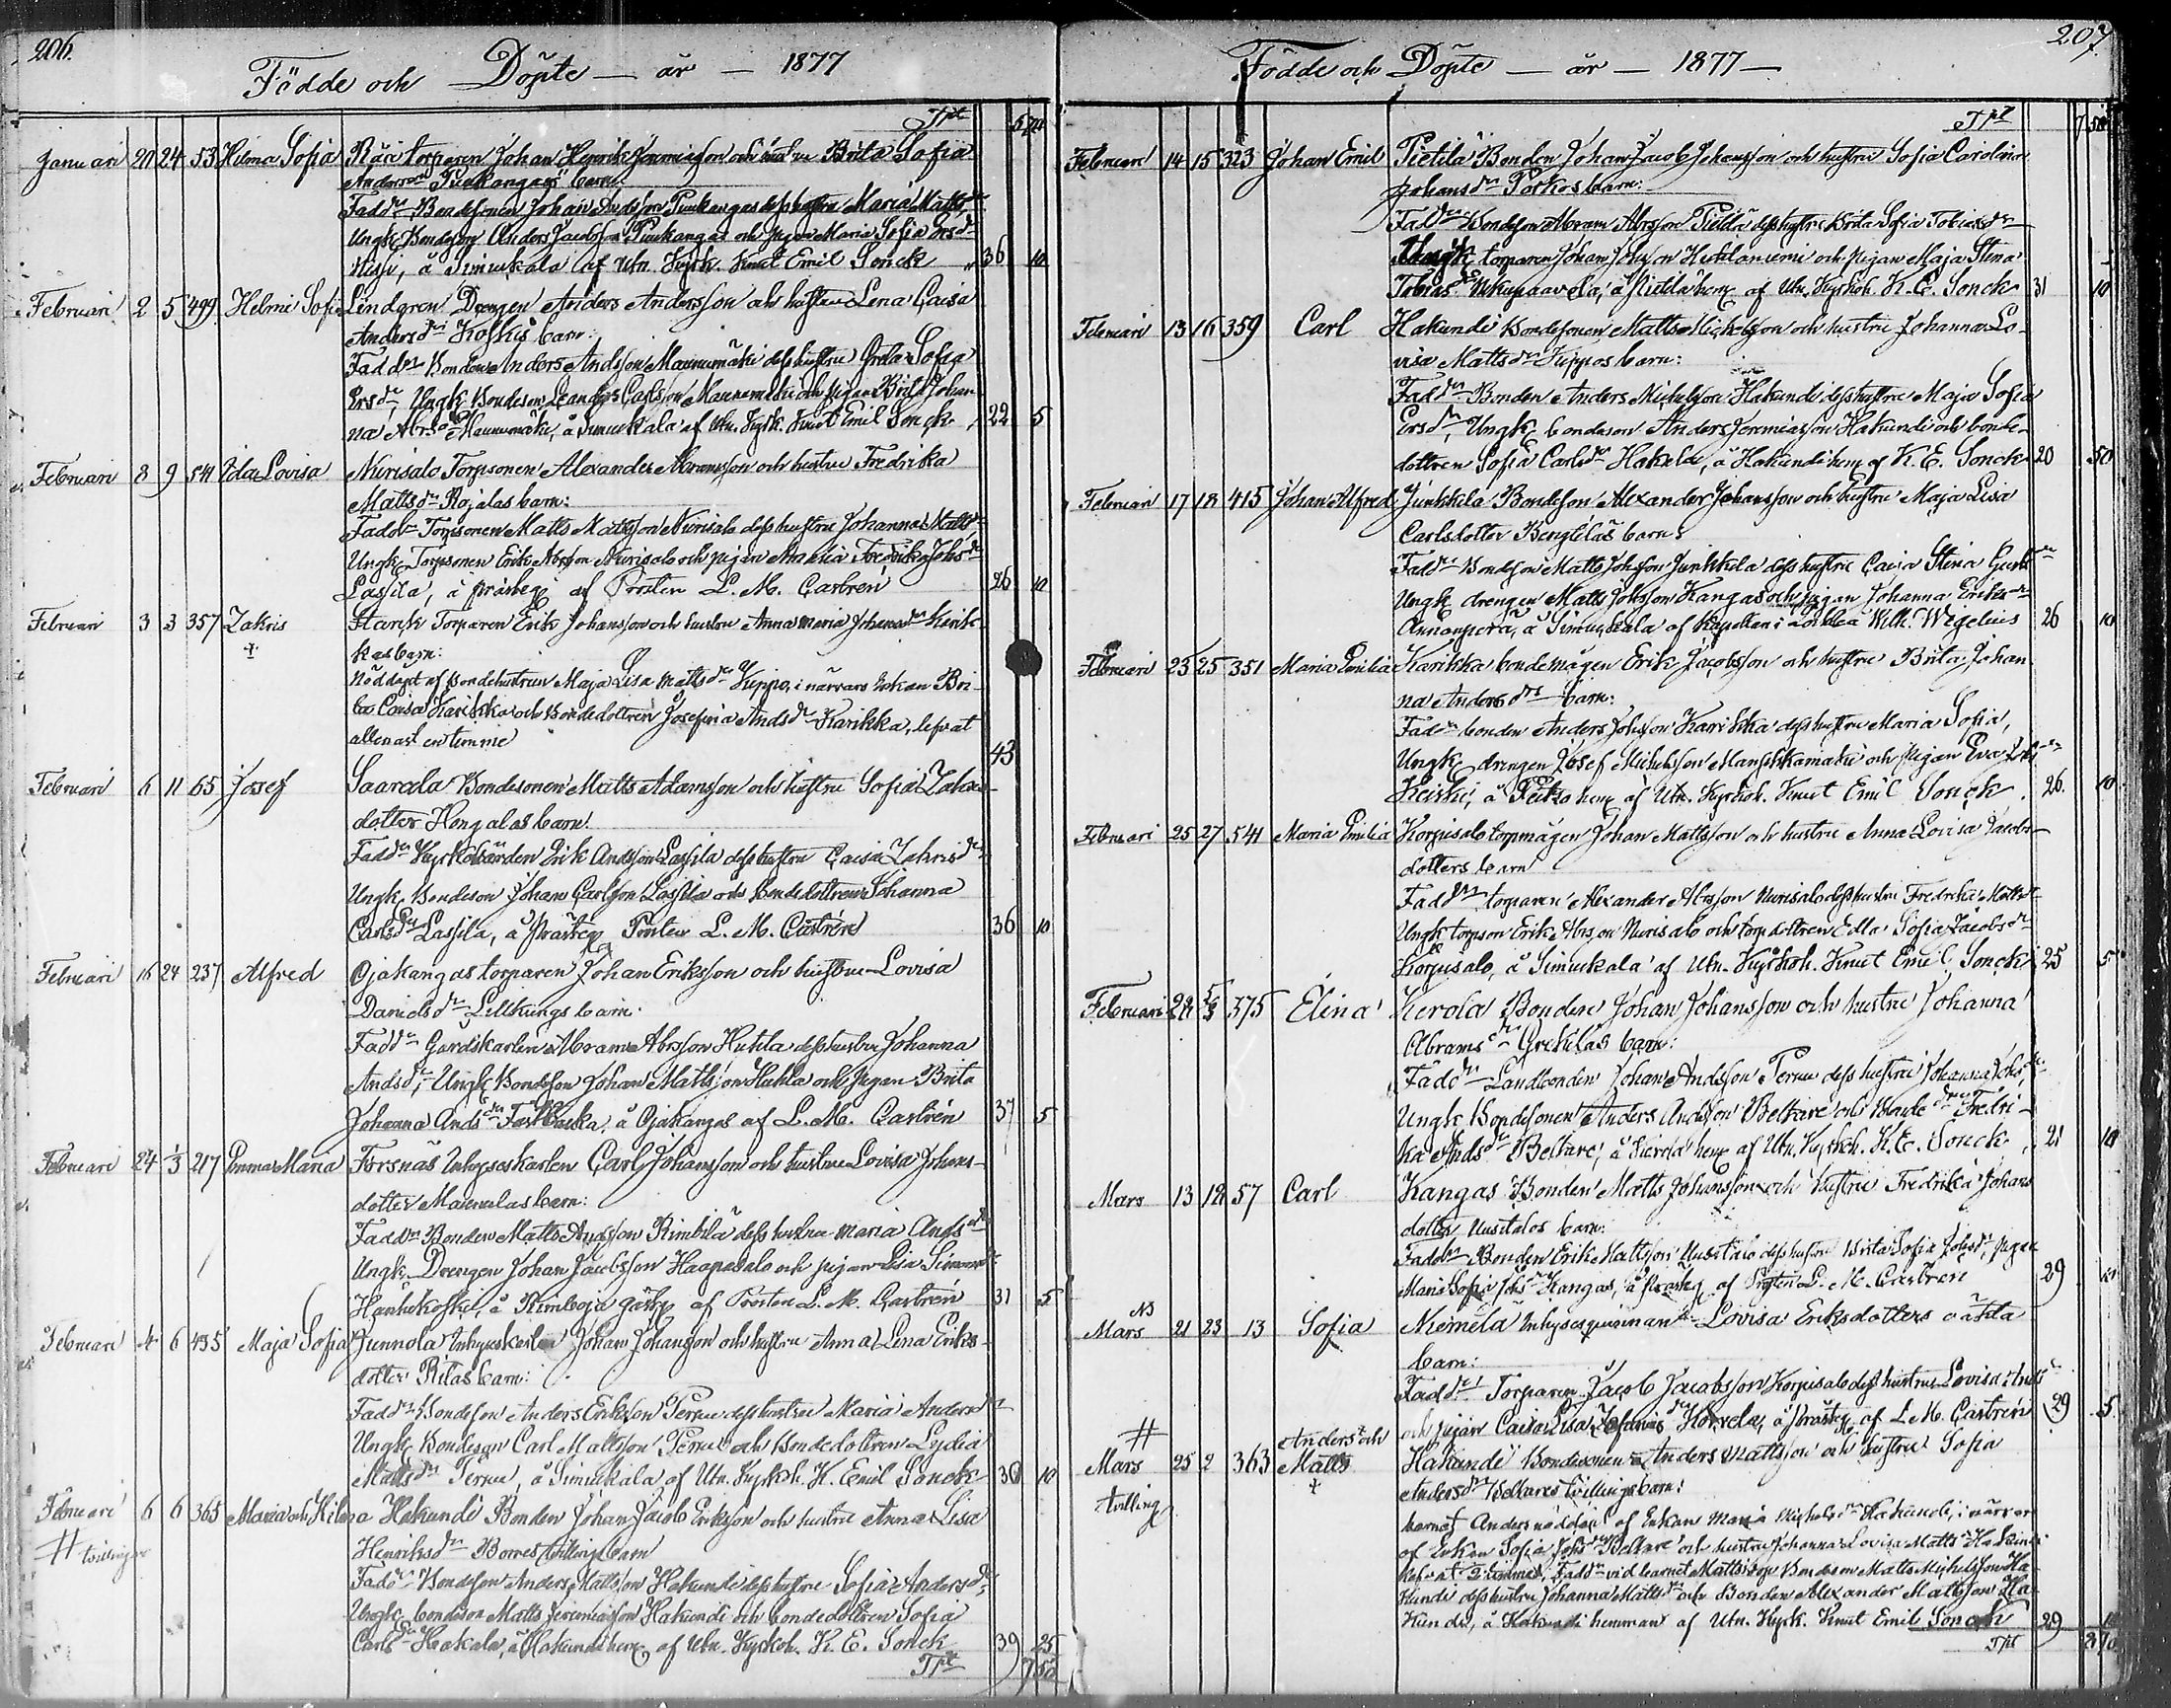 206.
Födde och Döpte — år — 1877
Tpt
Januari 20 24 53 Helma Sofia Räri torparen Johan Henrik Jeremiasson och Brita Sofia
Andersson barn:
Fadd Bondesonen Johan Andsson Punkangas dess hustru Maria Matts
Ungk Bondeson Anders Jacobsson Punkangas och pigan Maria Sofia Ersdr
å Simukala af Utn. Kyrk. Knut Emil Sonck 36 10
Februari 2 5 499 Helmi Sofia Lindgren Drengen Anders Andersson och hustru Lena Caisa
Andersdr barn:
Faddr Bonden Anders Andsson Maunumäki dess hustru Greta Sofia
Ersdr, Ungk. Bondeson Leander Carlsson Maunumäki och pigan Brita Johan
na Abrsdr Maunumäki, å Simukala af Utn. Kyrk. Knut Emil Sonck 22 5
Februari 8 9 541 Ida Lovisa Nurisalo Torpsonen Alexander Abramsson och hustru Fredrika
Mattsdr Rajalas barn:
Faddr Torpsonen Matts Mattsson Nurisalo dess hustru Johanna Mattsdr
Ungk Torpsonen Erik Abrsson Nurisalo och pigan Amalia Fredrika Johsdr
Lassila, å prästeg af Prosten L. M. Castrén 26 10
Februari 3 3 357 Zakris Stark Torparen Erik Johansson och hustru Anna Maria Johansdr Karik-
+ kas barn:
Nöddöpt af bondehustrun Maja Lisa Mattsdr Kuppo, i närvaro Enkan Bri-
ta Caisa Karikka och Bondedottren Josefina Andsdr Karikka, lefvat
allenast en timme 43
Februari 6 11 65 Josef Saarela Bondesonen Matts Adamsson och hustru Sofia Zakris-
dotter Hongalas barn:
Faddr Kyrkovärden Erik Andsson Lassila dess hustru Caisa Zakrisdr
Ungk. Bondeson Johan Carlsson Lassila och bondedottren Johanna
Carlsdr Lassila, å prästeg Prosten L. M. Castrén 36 10
Februari 16 24 237 Alfred Ojakangas torparen Johan Eriksson och hustru Lovisa
Danielsdr Lillkungs barn:
Faddr Gårdskarlen Abram Abrsson Huhta dess hustru Johanna
Andsdr, Ungk Bondeson Johan Mattsson Huhta och pigan Brita
Johanna Andsdr Fastbacka, å Ojakangas af L. M. Castrén 37 5
Februari 24 1/3 217 Emma Maria Forsnäs Inhyseskarlen Carl Johansson och hustru Lovisa Johans-
dotter Mannulas barn:
Faddr Bonden Matts Andsson Rimbilä dess hustru Maria Andsdr
Ungk. Drengen Johan Jacobsson Haapasalo och pigan Lisa Simonsdr
Hanhikoski, å Rimloja gästg af Prosten L. M. Castrén 31 5
Februari 4 6 435 Maja Sofia Junnola Inhyseskarlen Johan Johansson och hustru Anna Lena Eriks-
dotter Pitas barn:
Faddr Bondeson Anders Eriksson Pernu dess hustru Maria Andersdr
Ungk. Bondeson Carl Mattsson Pernu och Bondedottren Lydia
Mattsdr Pernu, å Simukala af Utn. Kyrkoh. K. Emil Sonck 30 10
Februari 6 6 365 Maria och Hilma Hakundi Bonden Johan Jacob Eriksson och hustru Anna Lisa
# tvillingar Henriksdr Borres tvillingbarn
Faddr Bondeson Anders Mattsson Hakundi dess hustru Sofia Andersdr,
Ungk. bondeson Matts Jeremiasson Hakundi och bondedottren Sofia
Carlsdr Hakala, å Hakundi hem af Utn. Kyrkoh. K. E. Sonck 39 25
Tpt 7 50
207
Födde och Döpte — år — 1877 —
Tpt 7 50
Februari 14 15 323 Johan Emil Pietilä Bonden Johan Jacob Johansson och hustru Sofia Carolina
Johansdr Porkos barn:
Faddr Bondeson Abram Abrsson Pietilä dess hustru Brita Sofia Tobiasdr
Ungk torparen Johan Johsson Huhtaniemi och pigan Maja Stina
Tobiasdr å Pietilä hem af Utn. Kyrkoh. K. E. Sonck 31 10
Februari 13 16 359 Carl Hakundi Bondesonen Matts Michelsson och hustru Johanna Lo-
visa Mattsdr Kuppos barn:
Faddr Bonden Anders Michelsson Hakundi dess hustru Maja Sofia
Ersdr, Ungk. bondeson Anders Jeremiasson Hakundi och bonde-
dottren Sofia Carlsdr Hakala, å Hakundi hem af K. E. Sonck 20 50
Februari 17 18 415 Johan Alfred Junkkila Bondeson Alexander Johansson och hustru Maja Lisa
Carlsdotter Bengtilas barn:
Faddr Bondeson Matts Johsson Junkkila dess hustru Caisa Stina Gustdr
Ungk. drengen Matts Johsson Kangas och pigan Johanna Eriksdr
Annanperä, å Simukala af Kapellan i Wilh. Wegelius 26 10
Februari 23 25 351 Maria Emilia Karikka bondemågen Erik Jacobsson och hustru Brita Johan-
na Andersdrs barn:
Faddr bonden Anders Johsson Karikka dess hustru Maria Sofia,
Ungk. drengen Josef Michelsson Manskkamäki och pigan Eva Johsdr
Keiski, å Peltro hem af Utn. Kyrkoh. Knut Emil Sonck. 26. 10
Februari 25 27 541 Maria Emilia Korpisalo torpmågen Johan Mattsson och hustru Anna Lovisa Jacobs-
dotters barn
Faddr torparen Alexander Abrsson Nurisalo dess hustru Fredrika Mattsdr
Ungk torpson Erik Abrsson Nurisalo och torpdottren Edla Sofia Jacobsdr
Korpisalo, å Simukala af Utn. Kyrkoh. Knut Emil Sonck 25 5
Februari 28 5/3 375 Elina Kerola Bonden Johan Johansson och hustru Johanna
Abramsdr Grekilas barn:
Faddr Landbonden Johan Andsson Pernu dess hustru Johanna Johsdr
Ungk Bondesonen Anders Andsson Beltare och Bondedr Fredri-
ka Andsdr Beltare, å Kierola hem af Utn. Kyrkoh. K. E. Sonck 21 10
Mars 13 18 57 Carl Kangas Bonden Matts Johansson och hustru Fredrika Johans
dotter Uusitalos barn:
Faddr Bonden Erik Mattsson Uusitalo dess hustru Brita Sofia Johsdr, pigan
Maria Sofia Johsdr Kangas, å prästeg. af Prosten L. M. Castrén 29 10
NB
Mars 21 23 13 Sofia Niemelä Inhysesqvinnan Lovisa Eriksdotters oäkta
barn:
Faddr Torparen Jacob Jacobsson Korpisalo dess hustru Lovisa Andsdr
och pigan Caisa Lisa Zefanias Horvela, å prästeg. af L. M. Castrén 29 5
# Anders + och
Mars 25 2 363 Matts Hakundi Bondesonen Anders Mattsson och hustru Sofia
tvilling + Andersdr Beltares tvillingbarn:
barnet Anders nöddöpt af Enkan Maria Michelsdr Hakundi, i närvaro
af Enkan Sofia Johsdr Beltare och hustru Johanna Lovisa Mattsdr Hakundi
lefvat 2 timmar, Faddr vid barnet Matts dop Bondeson Matts Michelsson Ha-
kundi dess hustru Johanna Mattsdr och Bonden Alexander Mattsson Ha-
kundi, å Hakundi hemman af Utn. Kyrk. Knut Emil Sonck 29 10
Tpt